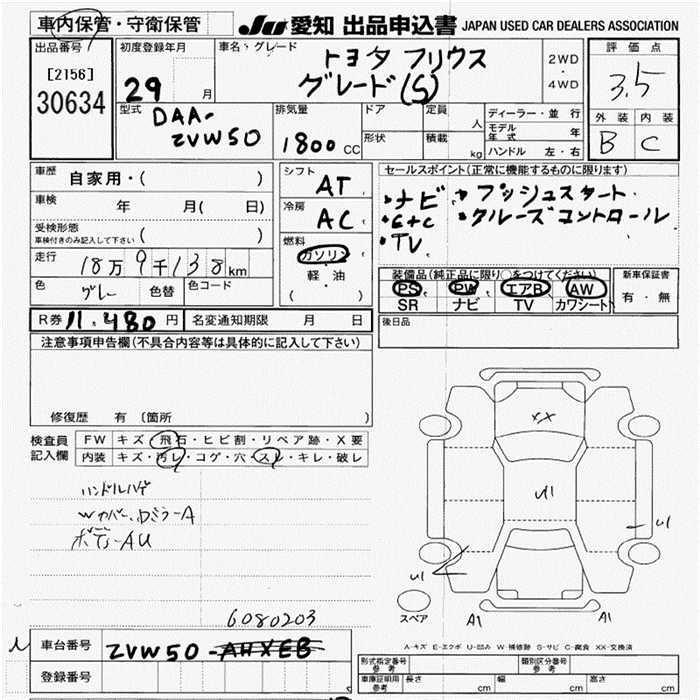 車内保管・守衛保管
JU 愛知 出品申込書 JAPAN USED CAR DEALERS ASSOCIATION
出品番号
[2156]
30634
初度登録年月
29 月
車名・グレード
トヨタ プリウス
グレード(S)
2WD
・
4WD
評価点
3.5
外装 内装
B C
型式
DAA-
ZVW50
排気量
1800 CC
ドア
形状
定員 人
積載 kg
ディーラー・並行
モデル年式 年
ハンドル 左・右
車歴 自家用・( )
車検 年 月( 日)
受検形態
車検付きのみ記入して下さい ( )
走行 18万9千138km
色 グレー 色替 色コード
シフト AT
冷房 AC
燃料
ガソリン
軽・油
( )
セールスポイント(正常に機能するものに限ります)
・ナビ ・プッシュスタート
・ETC ・クルーズコントロール
・TV
装備品(純正品に限り○をつけてください)
PS PW エアB AW
SR ナビ TV カワシート
新車保証書
有・無
R券 11,480円 名変通知期限 月 日
後日品
注意事項申告欄(不具合内容等は具体的に記入して下さい)
修復歴 有 〔箇所
検査員
記入欄
FW キズ・飛石・ヒビ割・リペア跡・X要
内装 キズ・汚レ・コゲ・穴・スレ・キレ・破レ
ハンドルハゲ
Wカバー、ドミラーA
ボディーAU
XX
U1
U1
U1
A1
A1
スペア
A-キズ E-エクボ U-凹み W-補修跡 S-サビ C-腐食 XX-交換済
6080203
車台番号 ZVW50-AHXEB
登録番号
型式指定番号
参考
類別区分番号
参考
車庫証明用
参考
長さ cm 幅 cm 高さ cm